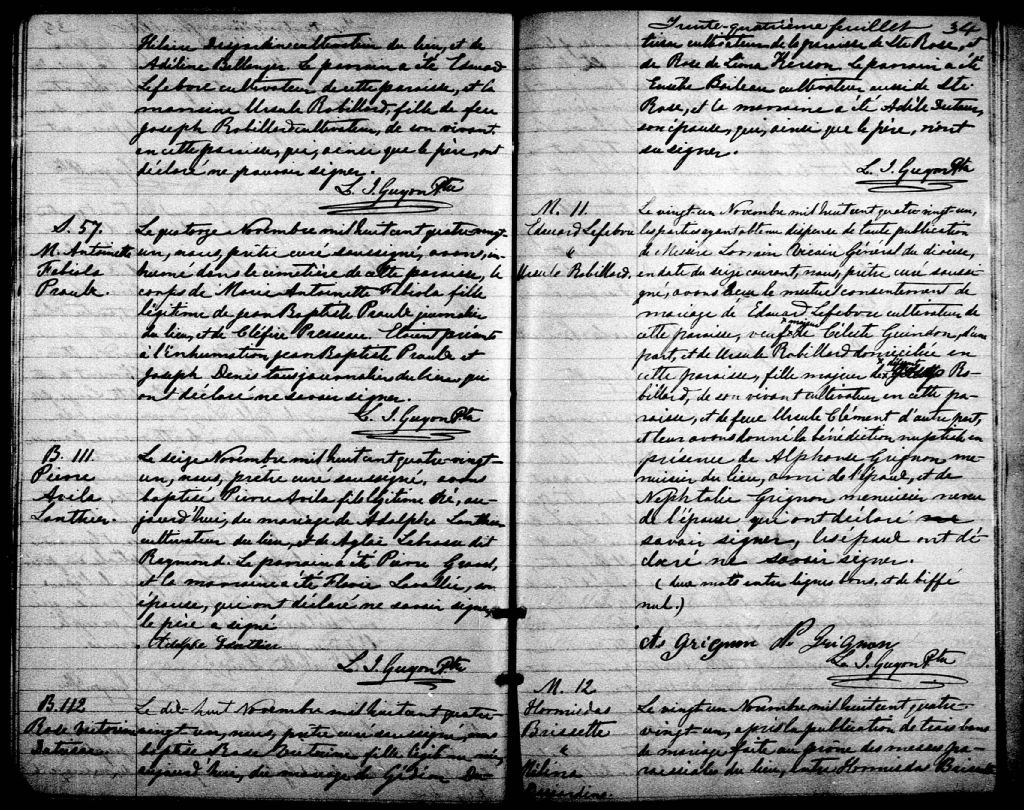 Hilaire Desjardins cultivateur du lieu, et de
Adéline Bellenger. Le parrain a été Edmond
Lefebvre cultivateur de cette paroisse, et la
marraine Ursule Robillard, fille de feu
Joseph Robillard cultivateur, de son vivant
en cette paroisse, qui, ainsi que le père, ont
déclaré ne pouvoir signer.
L. I. Guyon Ptre
S. 57.
M. Antoinette
Fabiola
Praule.
Le quatorze Novembre mil huit cent quatre-vingt-
un, nous, prêtre curé soussigné, avons, in-
humé dans le cimetière de cette paroisse, le
corps de Marie Antoinette Fabiola fille
légitime de Jean Baptiste Praule journalier
du lieu, et de Cléfire Presseau. Etaient présents
à l'inhumation Jean Baptiste Praule et
Joseph Denis tous journaliers du lieu qui
ont déclaré ne savoir signer.
L. I. Guyon Ptre
B. 111.
Pierre
Avila
Lanthier.
Le seize Novembre mil huit cent quatre-vingt-
un, nous, prêtre curé soussigné, avons
baptisé Pierre Avila fils légitime né, au-
jourd'hui, du mariage de Adolphe Lanthier
cultivateur du lieu, et de Aglaé Lebrasse dit
Raymond. Le parrain a été Pierre Grand,
et la marraine a été Flavie Lavallée, son
épouse, qui ont déclaré ne savoir signer,
le père a signé
Adolphe Lanthier
L. I. Guyon Ptre
B. 112
Rose
Le dix-huit Novembre mil huit cent quatre-
vingt-un, nous, prêtre curé soussigné, avons
baptisé Rose fille légitime née,
aujourd'hui, du mariage de Gédéon
Trente-quatrième feuillet 34
cultivateur de la paroisse de Ste Rose, et
de Rose de Lima Kerson. Le parrain a été
Eusèbe Boileau cultivateur aussi de Ste
Rose, et la marraine a été Adèle
son épouse, qui, ainsi que le père, n'ont
su signer.
L. I. Guyon Ptre
M. 11.
Edouard Lefebvre
"
Ursule Robillard,
Le vingt-un Novembre mil huit cent quatre-vingt-un,
les parties ayant obtenu dispense de toute publication
de Messire Lorrain Vicaire Général du diocèse,
en date du seize courant, nous, prêtre curé sous-
igné, avons reçu le mutuel consentement de
mariage de Edouard Lefebvre cultivateur de
cette paroisse, veuf de Céleste Guindon, d'une
part, et de Ursule Robillard domiciliée en
cette paroisse, fille majeur de défunt Joseph Ro-
billard, de son vivant cultivateur en cette pa-
roisse, et de feue Ursule Clément d'autre part,
et leur avons donné la bénédiction nuptiale en
présence de Alphonse Grignon me-
nuisier du lieu, ami de l'époux, et de
Nephtalie Grignon menuisier neveu
de l'épouse qui ont déclaré ne
savoir signer, les époux ont dé-
claré ne savoir signer.
(deux mots entre lignes bons, et de biffé
nul.)
As Grignon N. Grignon
L. I. Guyon Ptre
M. 12
Hormisdas
Brissette
"
Mélina
Desjardins.
Le vingt-un Novembre mil huit cent quatre-
vingt-un, après la publication de trois bans
de mariage faite au prône des messes pa-
roissiales du lieu, entre Hormisdas Brissette